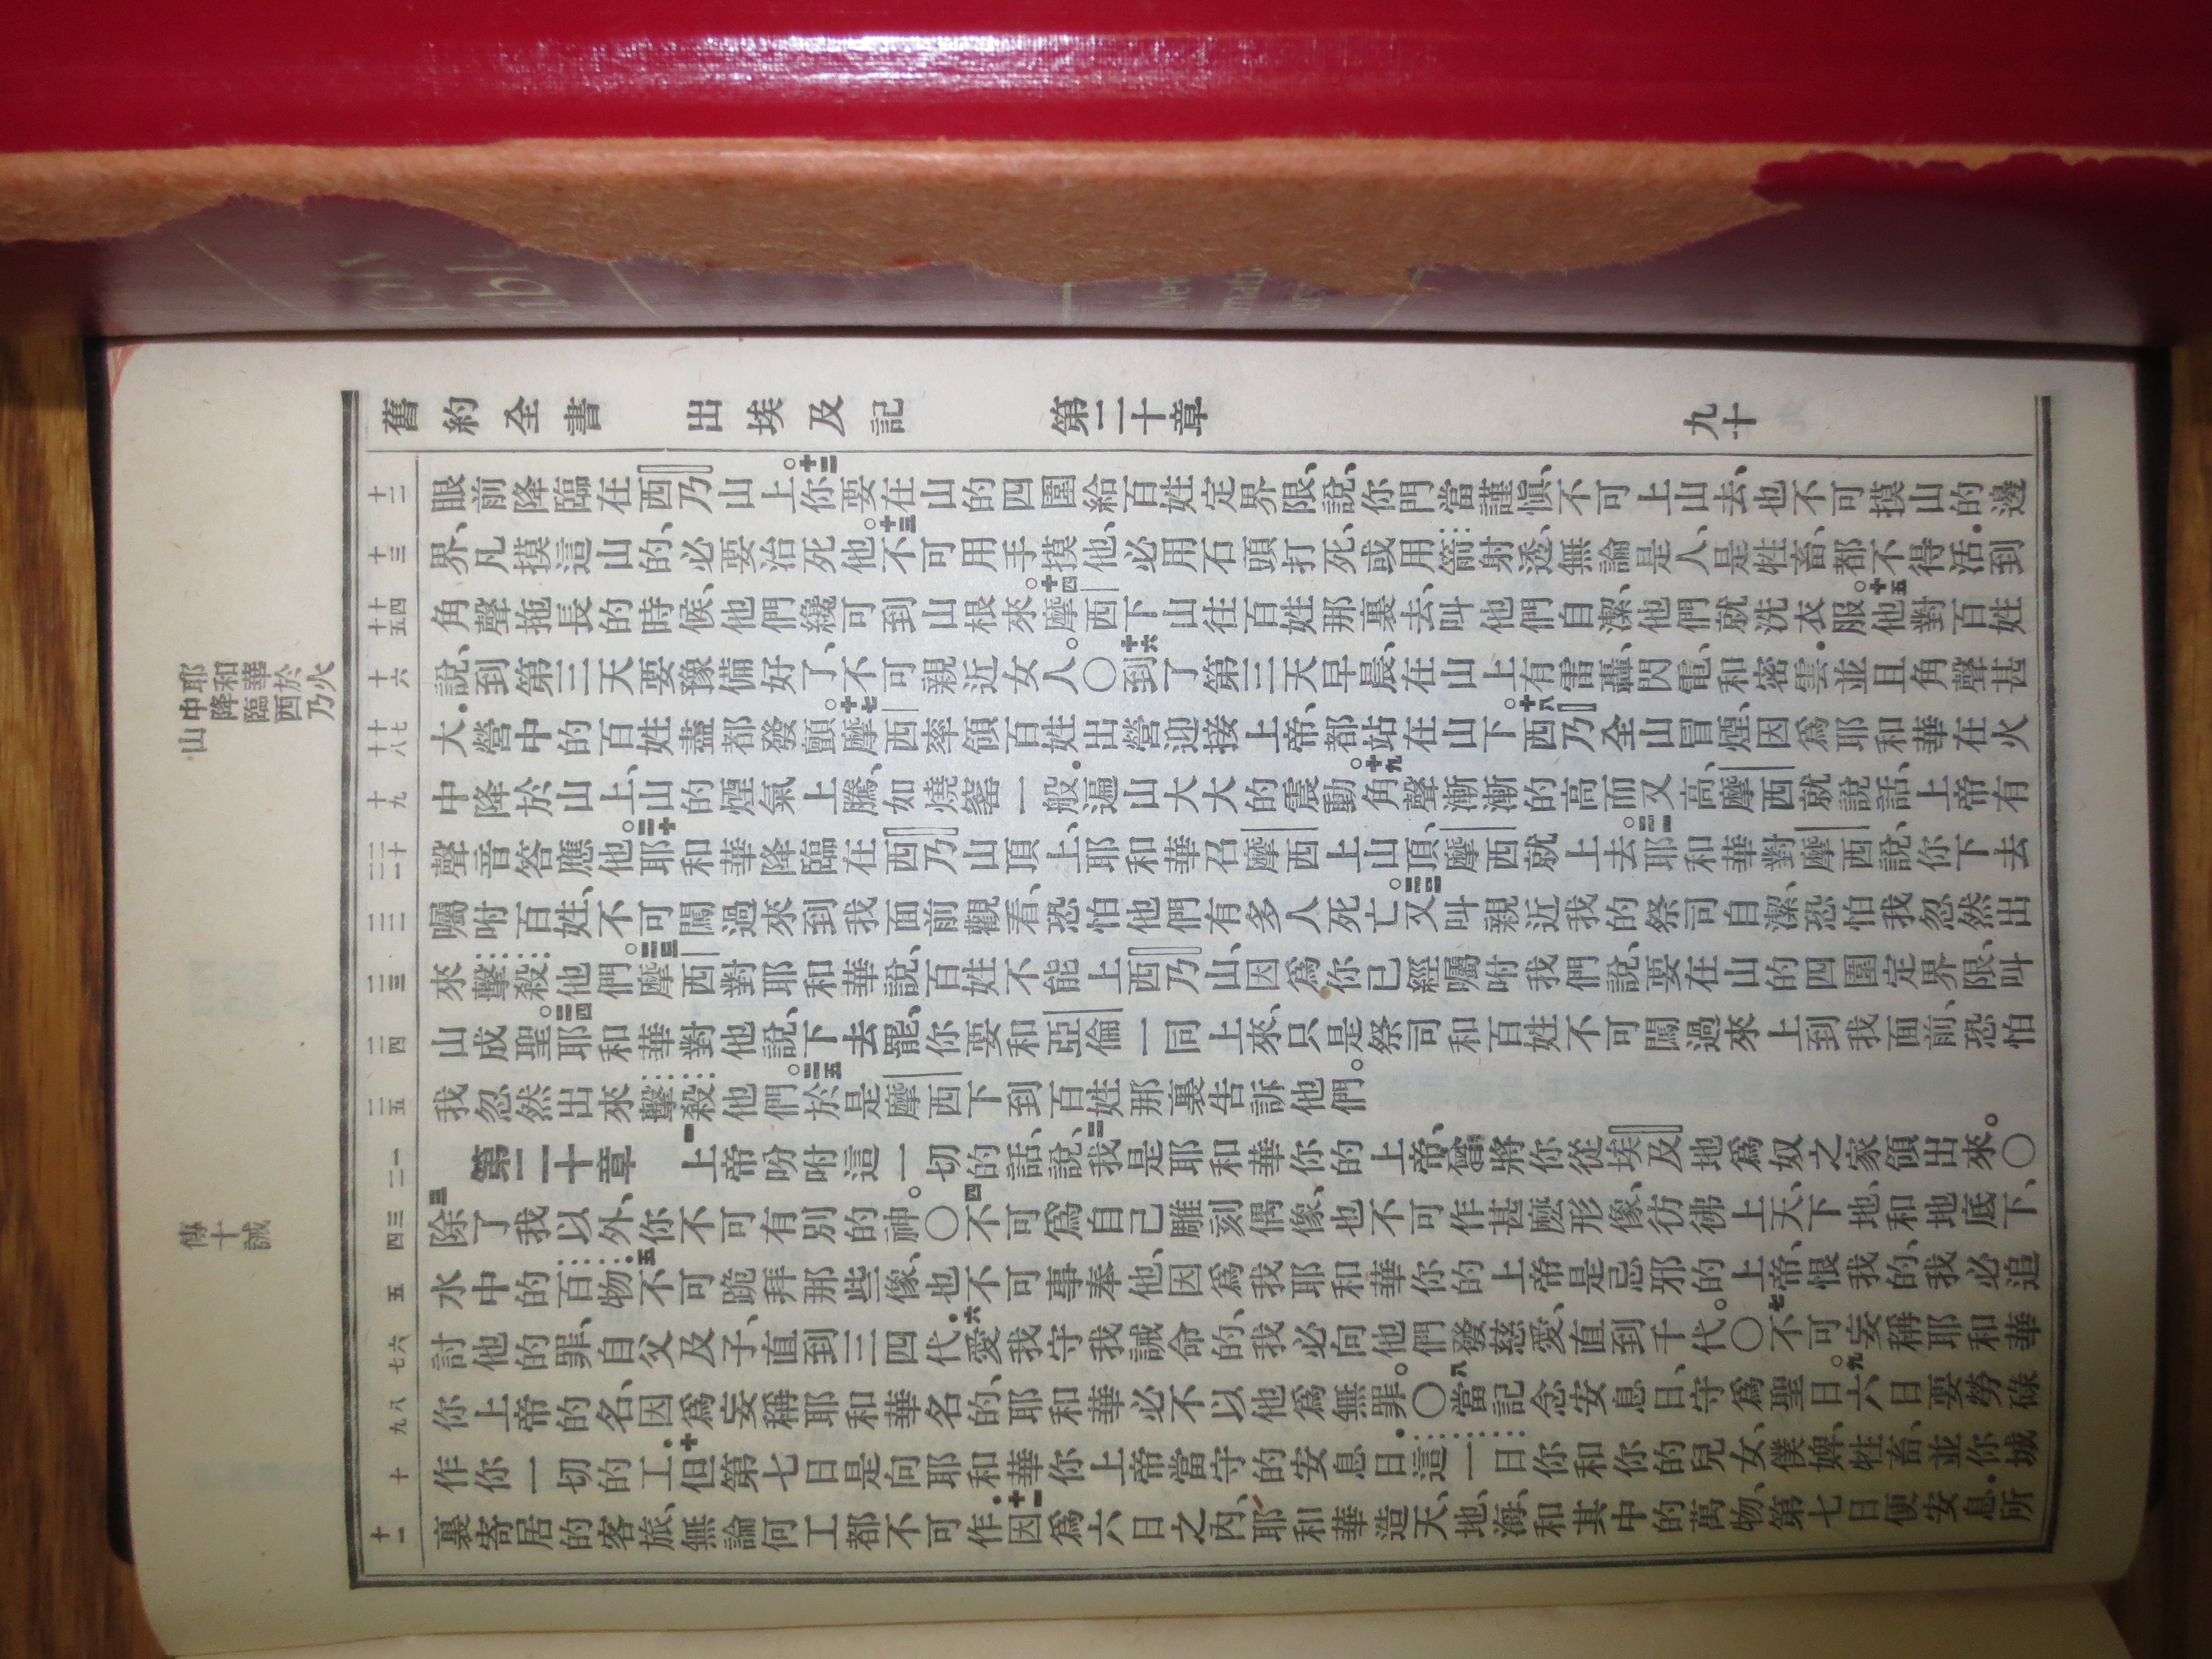 舊約全書 出埃及記 第二十章 九十
十二
眼前降臨在西乃山上。十二你要在山的四圍給百姓定界限、說、你們當謹愼、不可上山去、也不可摸山的邊
十三
界、凡摸這山的、必要治死他。十三不可用手摸他、必用石頭打死、或用箭射透、無論是人、是牲畜、都不得活．到
十四 十五
角聲拖長的時候、他們纔可到山根來。十四摩西下山往百姓那裏去、叫他們自潔、他們就洗衣服。十五他對百姓
十六
說、到第三天要豫備好了、不可親近女人。〇十六到了第三天早晨、在山上有雷轟、閃電、和密雲．並且角聲甚
十七 十八
大．營中的百姓盡都發顫。十七摩西率領百姓出營迎接上帝、都站在山下。十八西乃全山冒煙、因爲耶和華在火
十九
中降於山上、山的煙氣上騰、如燒窰一般．遍山大大的震動。十九角聲漸漸的高而又高、摩西就說話、上帝有
二十 二一
聲音答應他。二十耶和華降臨在西乃山頂上、耶和華召摩西上山頂、摩西就上去。二一耶和華對摩西說、你下去
二二
囑咐百姓、不可闖過來到我面前觀看、恐怕他們有多人死亡。二二又叫親近我的祭司自潔、恐怕我忽然出
二三
來擊殺他們。二三摩西對耶和華說、百姓不能上西乃山、因爲你已經囑咐我們說、要在山的四圍定界限、叫
二四
山成聖。二四耶和華對他說、下去罷、你要和亞倫一同上來、只是祭司和百姓不可闖過來上到我面前、恐怕
二五
我忽然出來擊殺他們。二五於是摩西下到百姓那裏告訴他們。
一 二
第二十章 一上帝吩咐這一切的話、說、二我是耶和華你的上帝、曾將你從埃及地爲奴之家領出來。〇
三 四
三除了我以外、你不可有別的神。〇四不可爲自己雕刻偶像、也不可作甚麽形像、彷彿上天、下地、和地底下、
五
水中的百物．五不可跪拜那些像、也不可事奉他、因爲我耶和華你的上帝是忌邪的上帝、恨我的、我必追
六 七
討他的罪、自父及子、直到三四代．六愛我守我誡命的、我必向他們發慈愛、直到千代。〇七不可妄稱耶和華
八 九
你上帝的名、因爲妄稱耶和華名的、耶和華必不以他爲無罪。〇八當記念安息日、守爲聖日。九六日要勞碌
十
作你一切的工．十但第七日是向耶和華你上帝當守的安息日．這一日你和你的兒女、僕婢、牲畜、並你城
十一
裏寄居的客旅、無論何工都不可作．十一因爲六日之內、耶和華造天、地、海、和其中的萬物、第七日便安息．所
耶和華於火
中降臨西乃
山
傳十誡